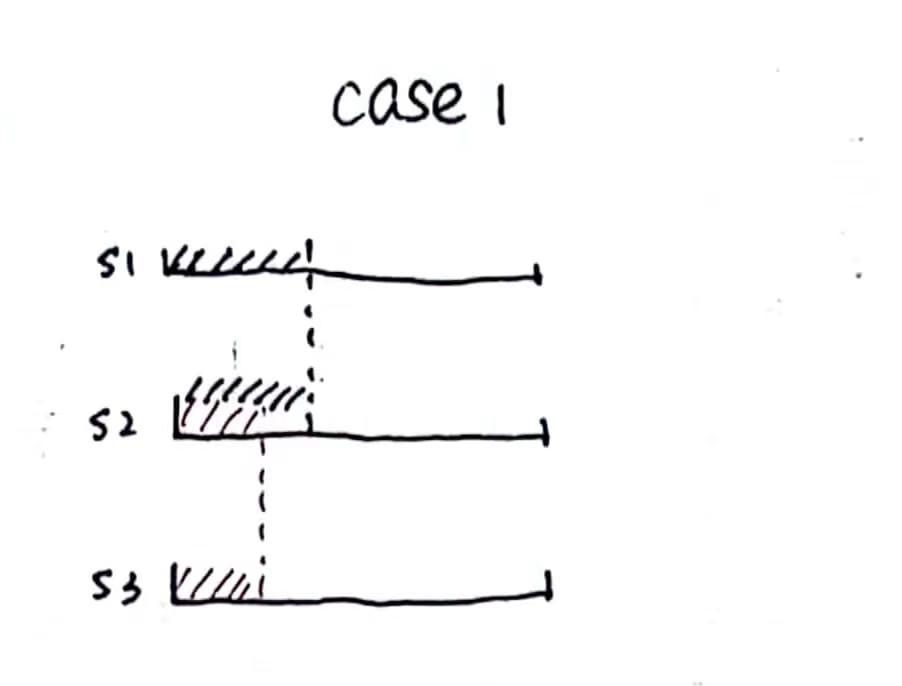 case 1
S1
S2
S3